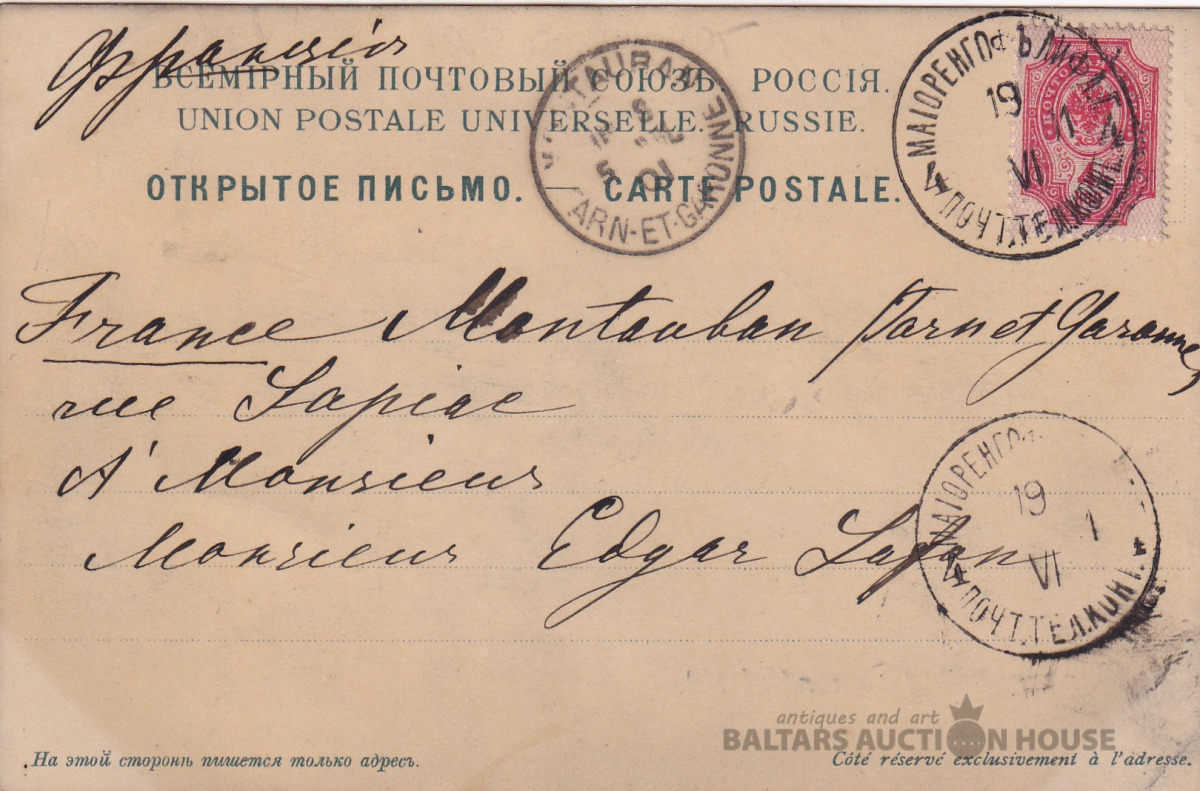 Франція
ВСЕМІРНЫЙ ПОЧТОВЫЙ СОЮЗЪ. РОССІЯ.
UNION POSTALE UNIVERSELLE. RUSSIE.
ОТКРЫТОЕ ПИСЬМО. — CARTE POSTALE.
TARN-ET-GARONNE
01
МАІОРЕНГОФЪ ЛИФЛ. Г.
19 1
VI
ПОЧТ. ТЕЛ. КОНТ.
France Montauban /Tarn et Garonne,
rue Sapiac
A' Monsieur
Monsieur Edgar Lafon
МАІОРЕНГО
19 1
VI
ПОЧТ. ТЕЛ. КОНТ.
antiques and art
BALTARS AUCTION HOUSE
На этой сторонѣ пишется только адресъ.
Côté réservé exclusivement à l'adresse.